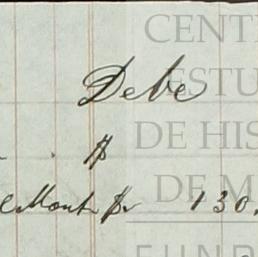 CENT
Debe
ESTU
$
DE HIS
Mont $r 130.
DE M
FUND